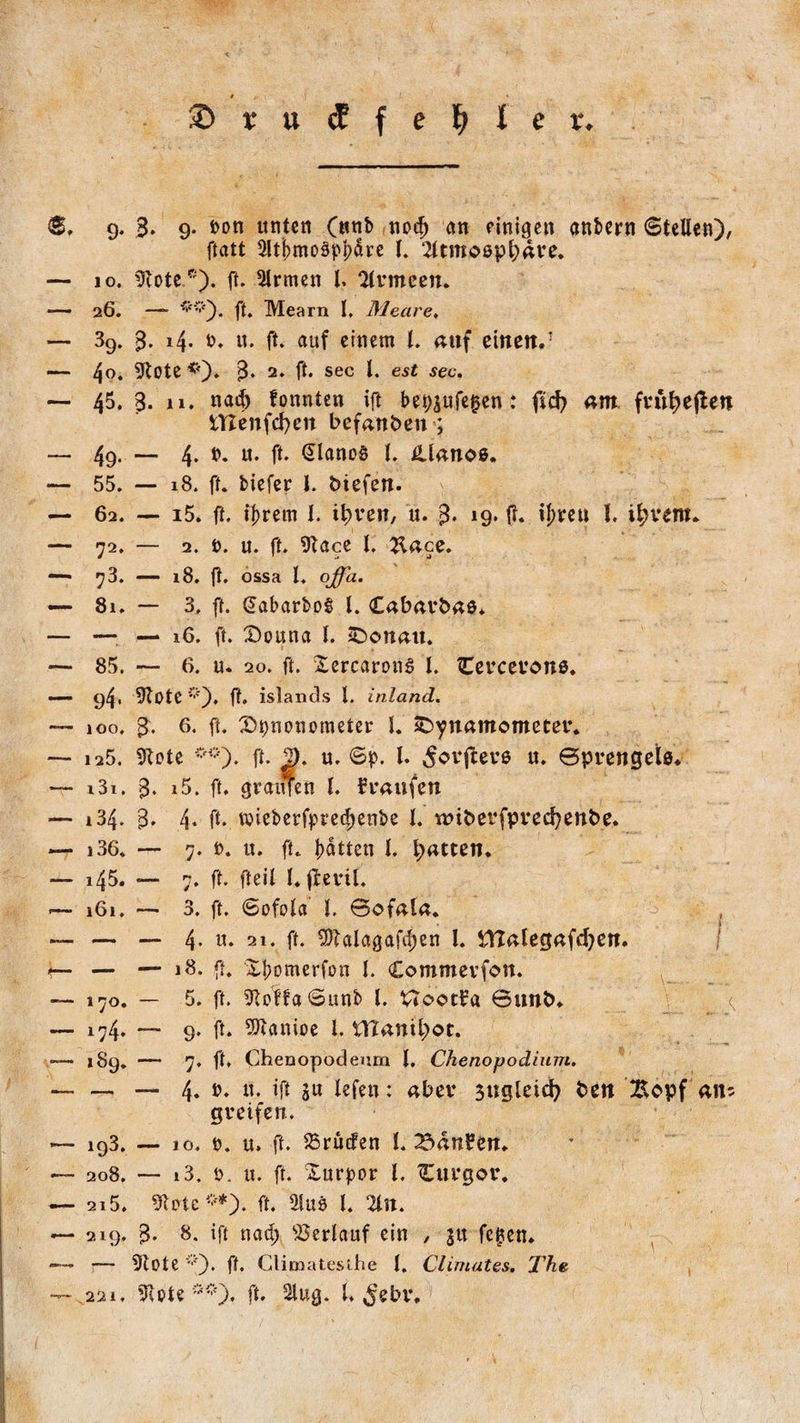 Druckfehler.
S. 9. Z. 9. von unten (und noch an einigen andern Stellen),
statt Athmosphäre l. Atmosphäre.
— 10. Note *). st. Armen l. Armeen.
— 26. — **). st. Mearn l. Meare.
— 39. Z. 14. v. u. st. auf einem l. auf einen.
— 40. Note *). Z. 2. st. sec l. est sec.
— 45. Z. 11. nach konnten ist beyzusetzen: sich am frühesten
Menschen befanden;
— 49. — 4. v. u. st. Elanos l. Llanos.
— 55. — 18. st. dieser l. diesen.
— 62. — 15. st. ihrem l. ihren, u. Z. 19. st. ihren l. ihrem.
— 72. — 2. v. u. st. Raçe l. Raçe.
— 73. — 18. st. ossa l. offa.
— 81. — 3. st. Cabardos l. Cabardas.
— — — 16. st. Douna l. Donau.
— 85. — 6. u. 20. st. Tercarons l. Tercerons.
— 94. Note *). st. islands l. inland.
— 100. Z. 6. st. Dynonometer l. Dynamometer.
— 125. Note **). st. Y. u. Sp. l. Forsters u. Sprengels.
— 131. Z. 15. st. graufen l. kraufen
— 134. Z. 4. st. wiedersprechende l. widersprechende.
— 136. — 7. v. u. st. hätten l. hatten.
— 145. — 7. st. steil l. steril.
— 161. — 3. st. Sofola l. Sofala.
— — — 4. u. 21. st. Malagaschen l. Malegaschen.
— — — 18. st. Thomerson l. Commerson.
— 170. — 5. st. Nokka Sund l. Nootka Sund.
— 174. — 9. st. Manioe l. Manihot.
— 189. — 7. st. Chenopodeum l. Chenopodium.
— — — 4. v. u. ist zu lesen: aber zugleich den Kopf an=
greifen.
— 193. — 10. v. u. st. Brücken l. Bänken.
— 208. — 13. v. u. st. Turpor l. Turgor.
— 215. Note **). st. Aus l. An.
— 219. Z. 8. ist nach Verlauf ein , zu setzen.
— — Note *). st. Climatesthe l. Climates. The
— 221. Note **). st. Aug. l. Febr.